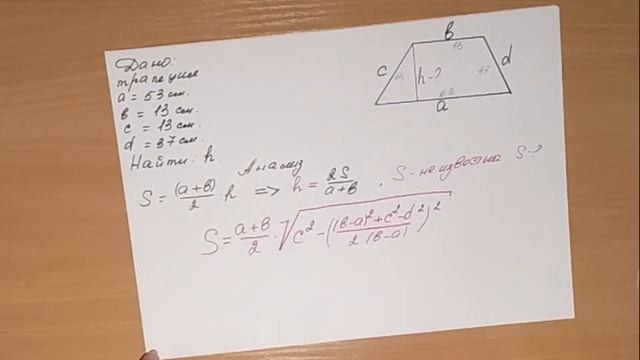 Дано:
трапеция
a = 53 см.
в = 13 см.
c = 13 см.
d = 37 см.
Найти: h.
в
13
c
13
h-?
37
d
63
a
Анализ
S = (a+в)/2 · h => h = 2S/(a+в), S - неизвестна. S-?
S = (a+в)/2 · √(c² - (((в-a)²+c²-d²)/(2(в-a)))²)